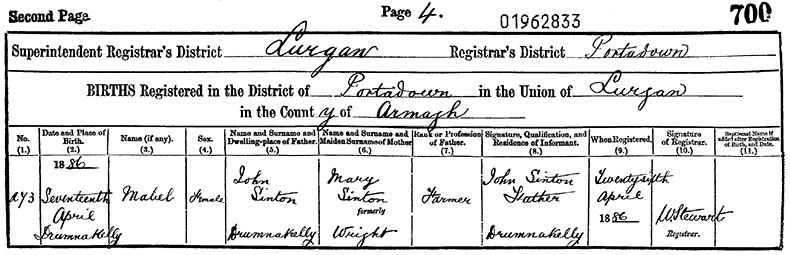 Second Page.
Page 4.
01962833
700
Superintendent Registrar's District Lurgan Registrar's District Portadown
BIRTHS Registered in the District of Portadown in the Union of Lurgan
in the County of Armagh
No. (1.)
Date and Place of Birth. (2.)
Name (if any). (3.)
Sex. (4.)
Name and Surname and Dwelling-place of Father. (5.)
Name and Surname and Maiden Surname of Mother (6.)
Rank or Profession of Father. (7.)
Signature, Qualification, and Residence of Informant. (8.)
When Registered. (9.)
Signature of Registrar. (10.)
Baptismal Name if added after Registration of Birth, and Date. (11.)
1886
Seventeenth
April
Drumnakelly
Mabel
Female
John
Sinton
Drumnakelly
Mary
Sinton
formerly
Wright
Farmer
John Sinton
Father
Drumnakelly
Twentysixth
April
1886
WStewart
Registrar.